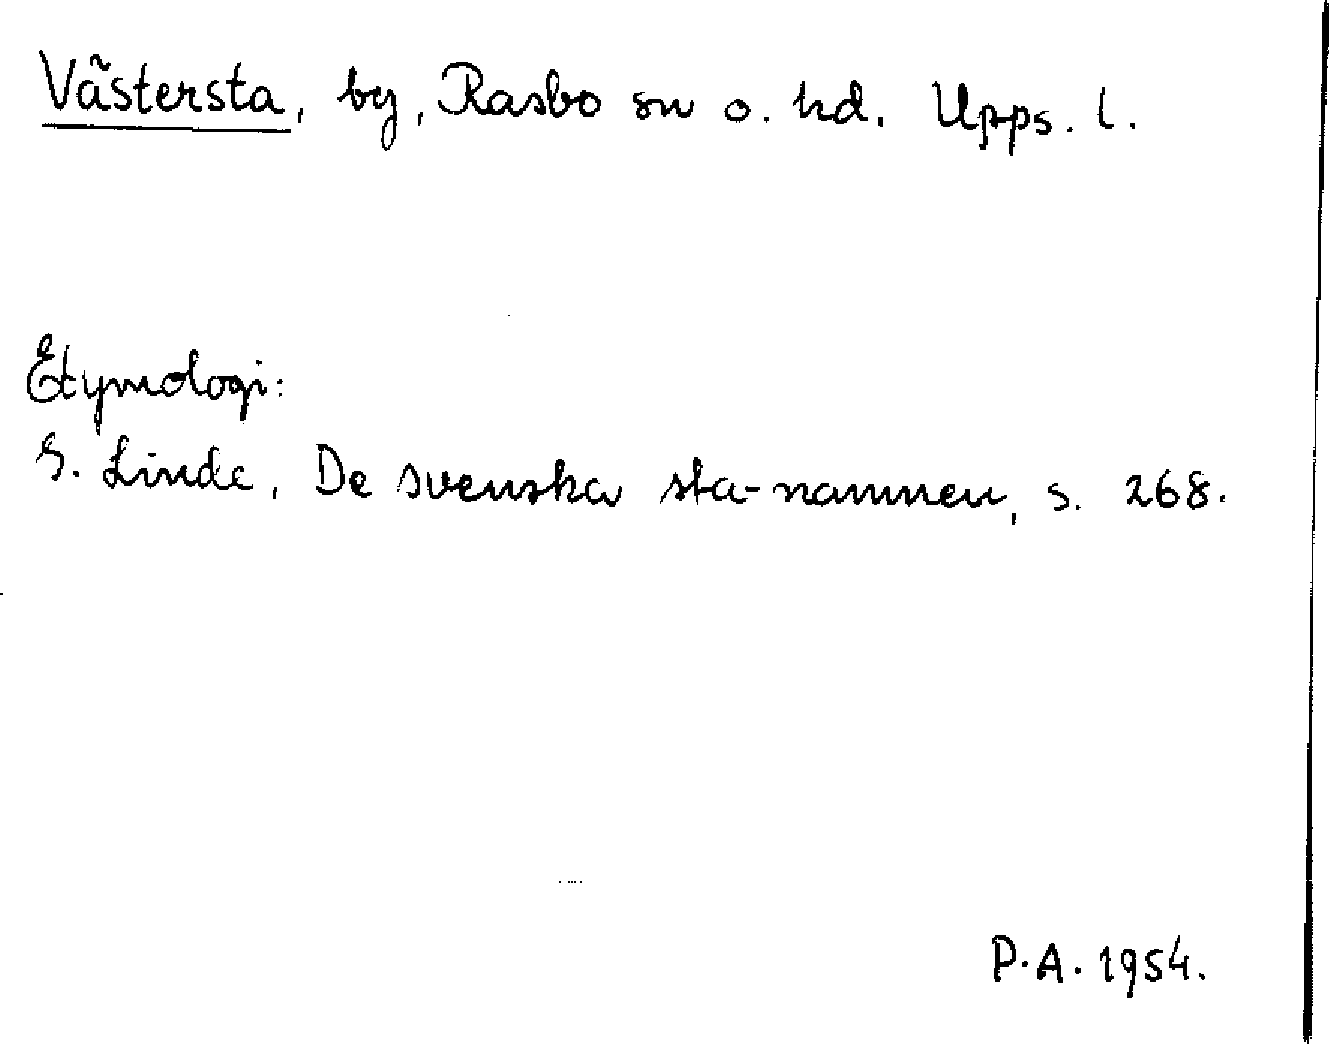 Västersta, by, Rasbo sn o. hd. Upps. l.
Etymologi:
G. Linde, De svenska sta-namnen, s. 268.
P.A. 1954.